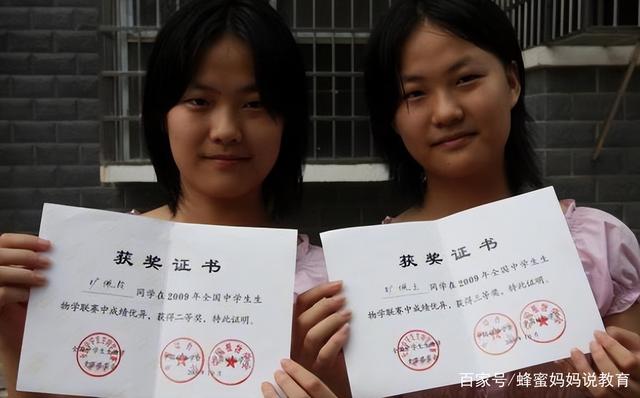 获奖证书
同学在2009年全国中学生生
物学联赛中成绩优异，获得二等奖，特此证明。
获奖证书
同学在2009年全国中学生生
物学联赛中成绩优异，获得三等奖，特此证明。
百家号/蜂蜜妈妈说教育